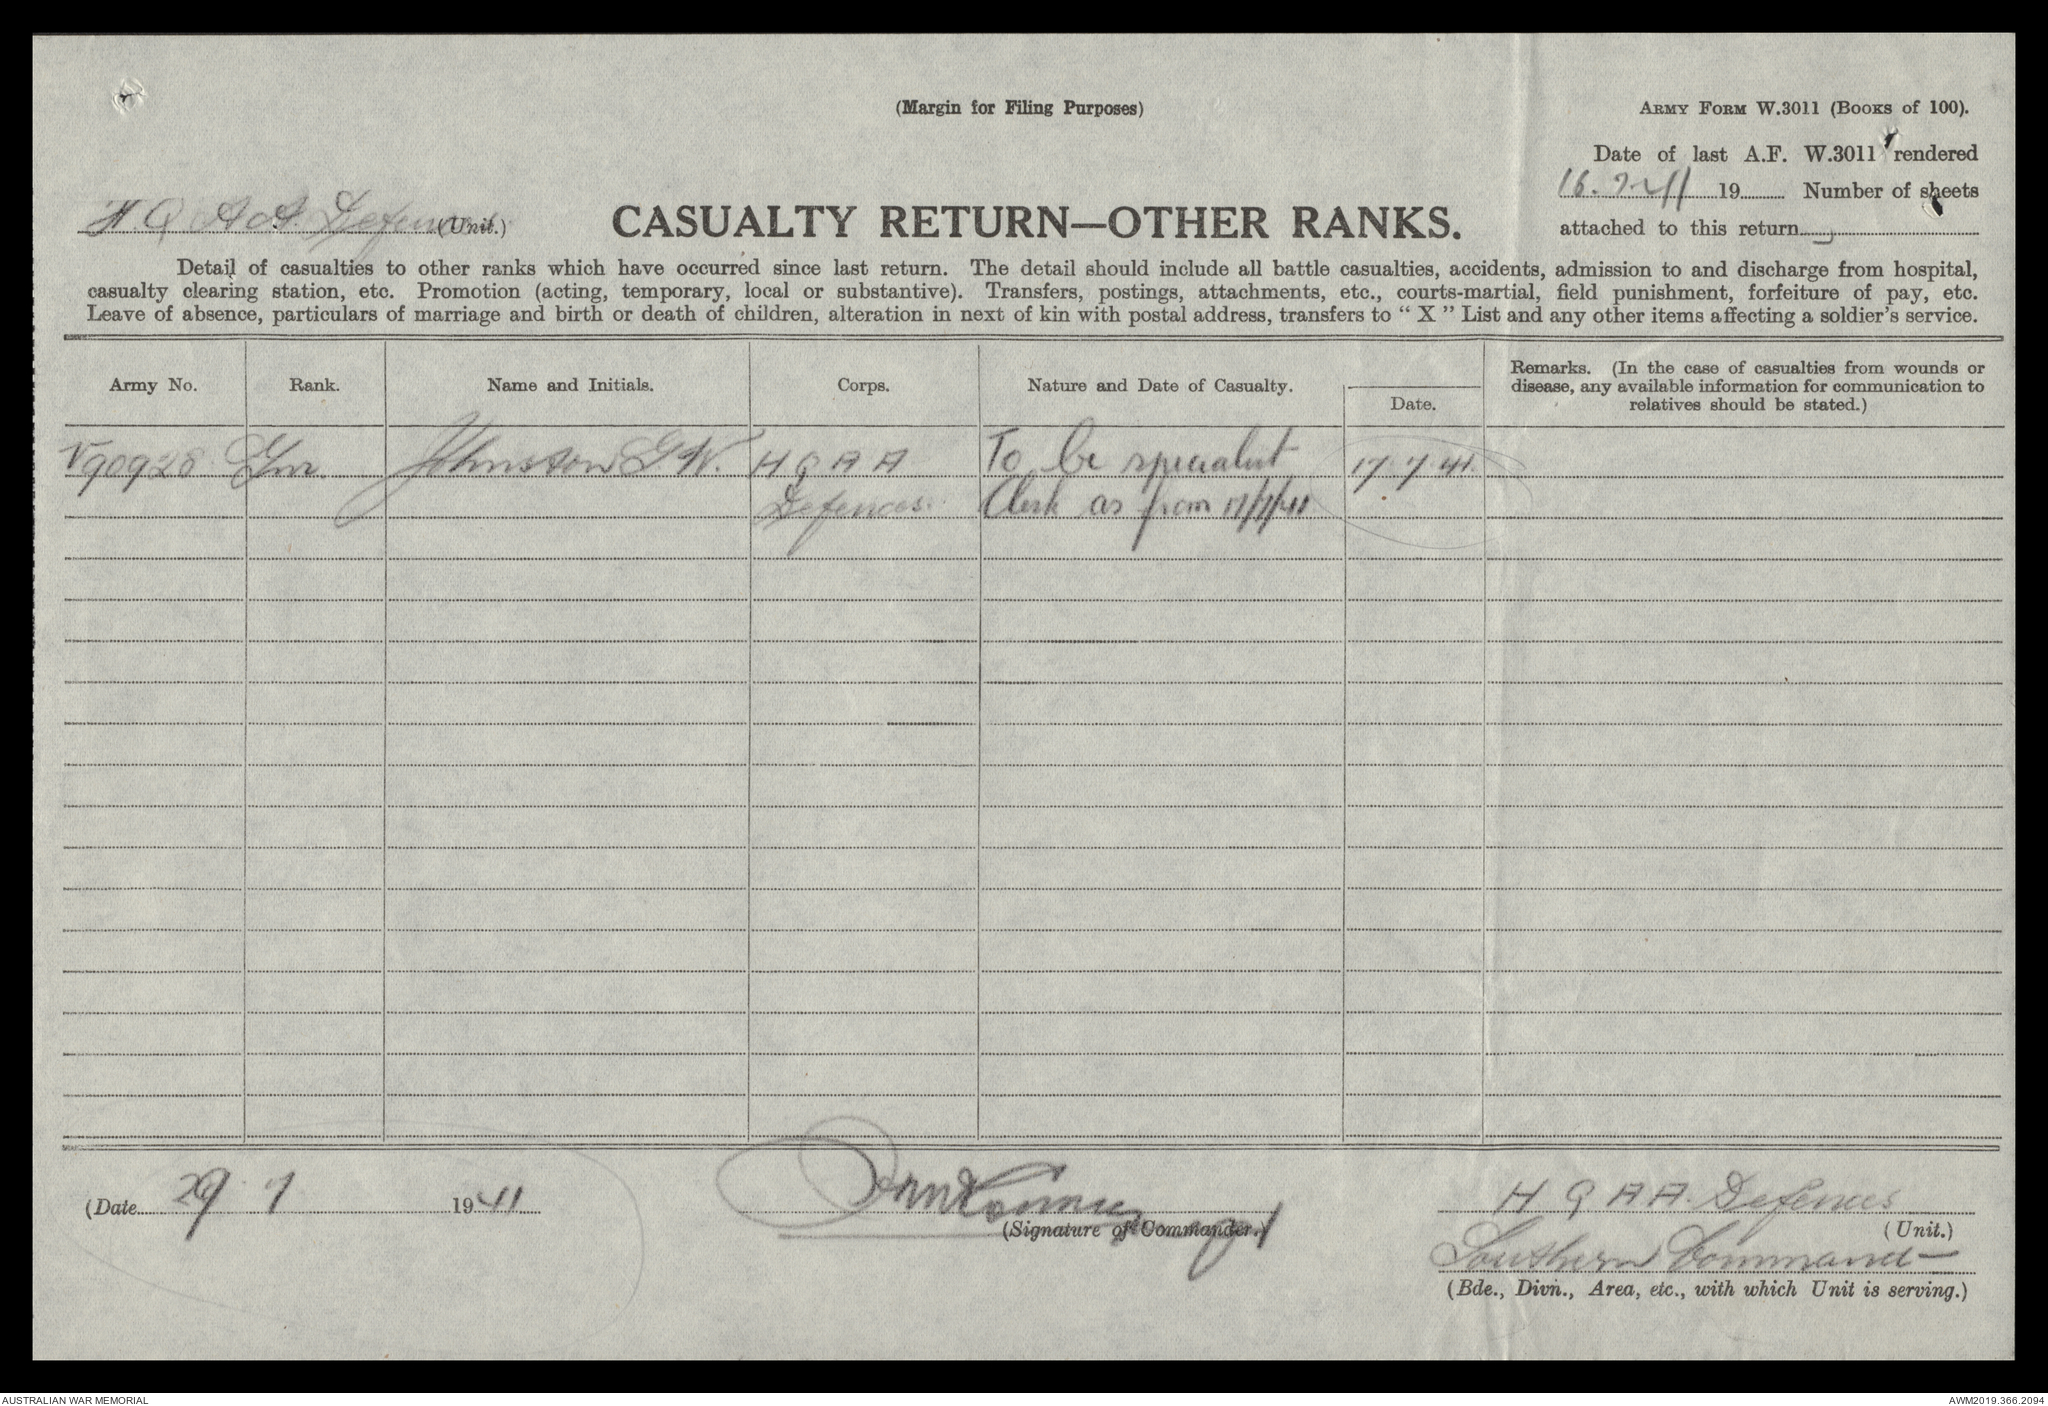 (Margin for Filing Purposes)
ARMY FORM W.3011 (BOOKS of 100).
Date of last A.F. W.3011 rendered
16.7.41 19 Number of sheets
attached to this return
H.Q A A. Defences (Unit.)
CASUALTY RETURN—OTHER RANKS.
Detail of casualties to other ranks which have occurred since last return. The detail should include all battle casualties, accidents, admission to and discharge from hospital,
casualty clearing station, etc. Promotion (acting, temporary, local or substantive). Transfers, postings, attachments, etc., courts-martial, field punishment, forfeiture of pay, etc.
Leave of absence, particulars of marriage and birth or death of children, alteration in next of kin with postal address, transfers to “ X ” List and any other items affecting a soldier's service.
Army No. Rank. Name and Initials. Corps. Nature and Date of Casualty. Date. Remarks. (In the case of casualties from wounds or
disease, any available information for communication to
relatives should be stated.)
V90928 Gnr. Johnston G.W. H Q A A To be specialist 17.7.41.
Defences. Clerk as from 17/7/41
(Date 29.7 1941
(Signature of Commander.)
H Q A A. Defences
(Unit.)
Southern Command
(Bde., Divn., Area, etc., with which Unit is serving.)
AUSTRALIAN WAR MEMORIAL
AWM2019.366.2094